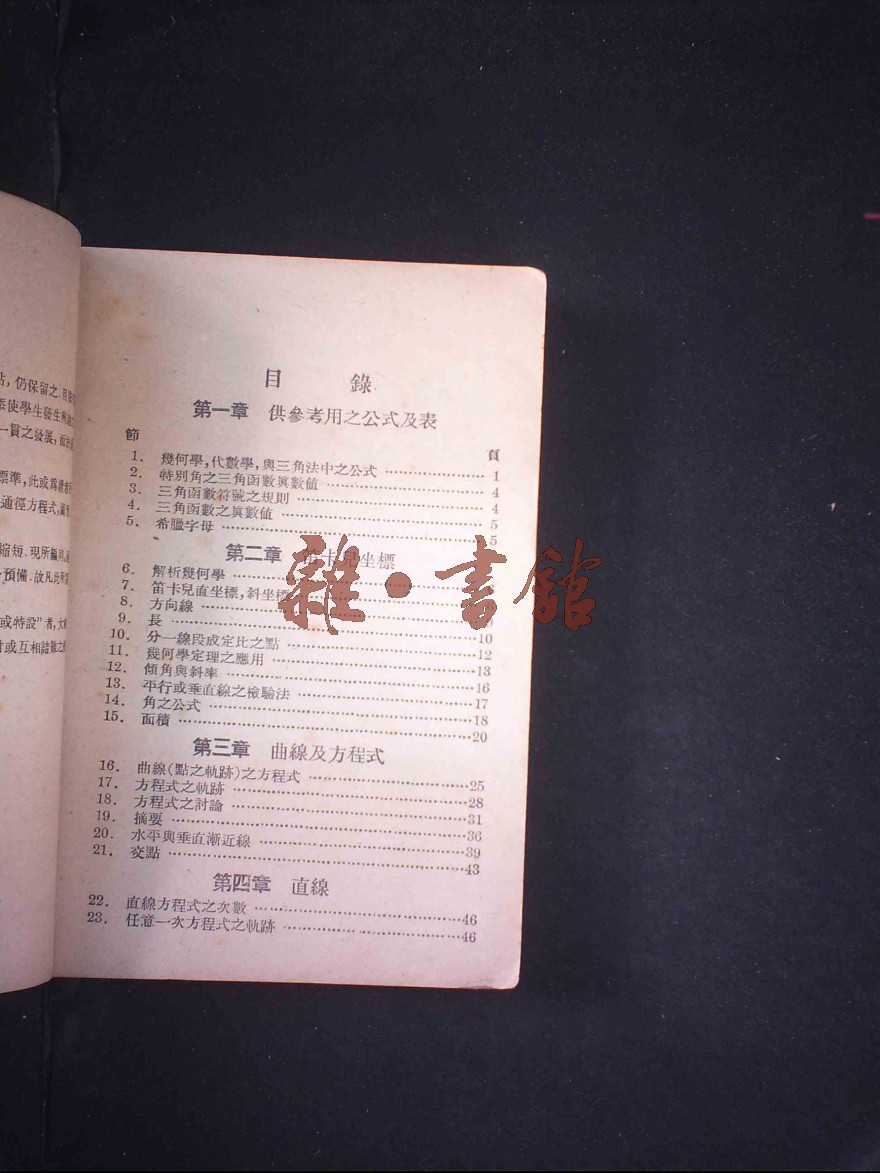 點，仍保留之．
使學生發生
一貫之發展，
標準，此或爲
通徑方程式，
縮短．現所編
預備．故凡此所
或特設"者，大
或互相詰難之
目 錄
第一章 供參考用之公式及表
節 頁
1. 幾何學，代數學，與三角法中之公式 1
2. 特別角之三角函數眞數値 4
3. 三角函數符號之規則 4
4. 三角函數之眞數値 5
5. 希臘字母 5
第二章 笛卡兒坐標
6. 解析幾何學
7. 笛卡兒直坐標，斜坐標
8. 方向線
9. 長
10. 分一線段成定比之點 10
11. 幾何學定理之應用 12
12. 傾角與斜率 13
13. 平行或垂直線之檢驗法 16
14. 角之公式 17
15. 面積 18
20
第三章 曲線及方程式
16. 曲線（點之軌跡）之方程式 25
17. 方程式之軌跡 28
18. 方程式之討論 31
19. 摘要 36
20. 水平與垂直漸近線 39
21. 交點 43
第四章 直線
22. 直線方程式之次數 46
23. 任意一次方程式之軌跡 46
雜·書館